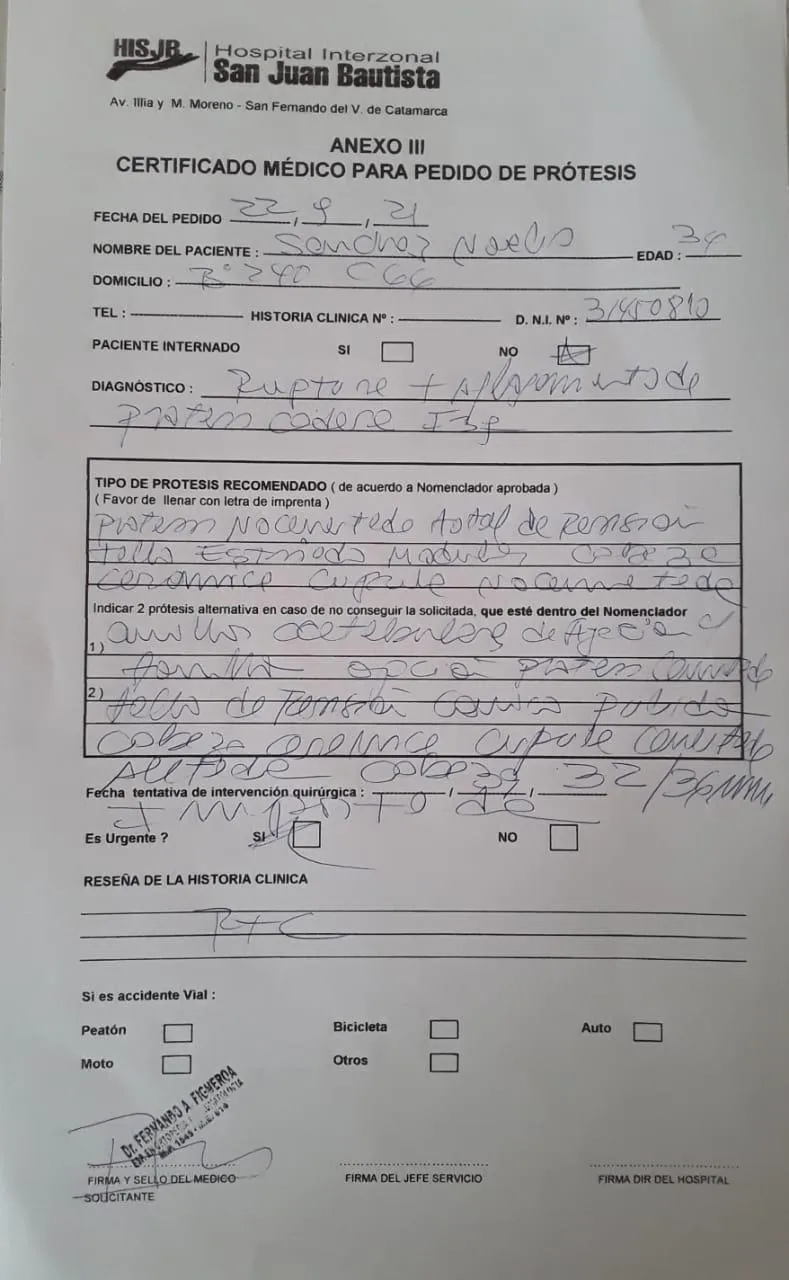 HISJB Hospital Interzonal
San Juan Bautista
Av. Illia y M. Moreno - San Fernando del V. de Catamarca
ANEXO III
CERTIFICADO MÉDICO PARA PEDIDO DE PRÓTESIS
FECHA DEL PEDIDO 22, 9, 21
NOMBRE DEL PACIENTE : Sanchez Noelia EDAD : 34
DOMICILIO : B° 240
TEL : HISTORIA CLINICA Nº : D. N.I. Nº : 31450810
PACIENTE INTERNADO SI NO
DIAGNÓSTICO : Ruptura + Aflojamiento de
Protesis Cadera Izq
TIPO DE PROTESIS RECOMENDADO ( de acuerdo a Nomenclador aprobada )
( Favor de llenar con letra de imprenta )
Protesis No cementada total de Revision
tallo Estriado Modular Cabeza
Ceramica Cupula No cementada
Indicar 2 prótesis alternativa en caso de no conseguir la solicitada, que esté dentro del Nomenclador
anillos acetabulares de
1) opcion protesis cementada
2) tallo de Revision conico pulido
Cabeza ceramica cupula cementado
Cabeza 32/36mm
Fecha tentativa de intervención quirúrgica : / /
Es Urgente ? SI NO
RESEÑA DE LA HISTORIA CLINICA
RTC
Si es accidente Vial :
Peatón Bicicleta Auto
Moto Otros
Dr. FERNANDO A. FIGUEROA
FIRMA Y SELLO DEL MEDICO FIRMA DEL JEFE SERVICIO FIRMA DIR DEL HOSPITAL
SOLICITANTE